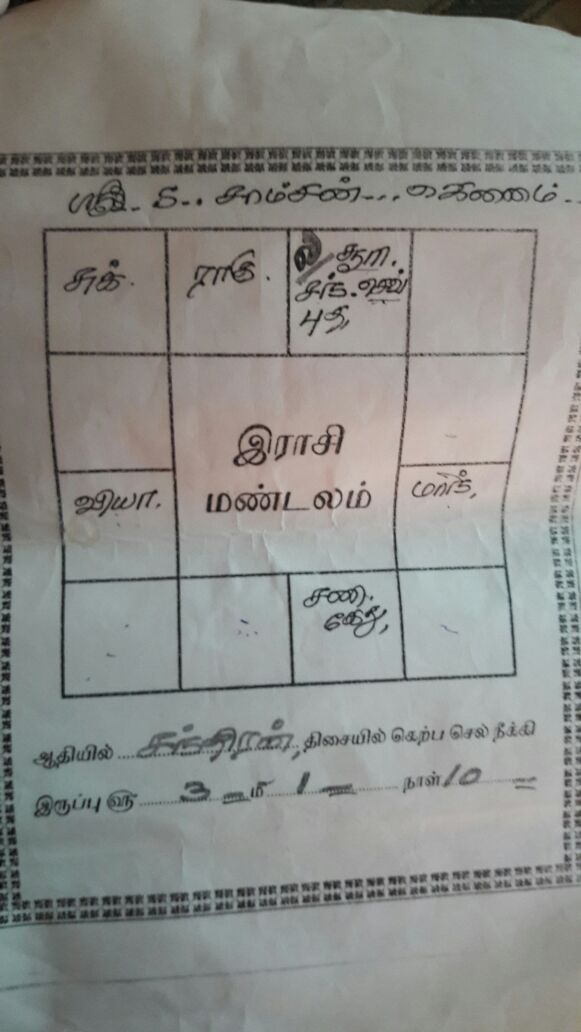 S.. சாம்சன்...
சுக்.
ராகு.
ல/ சூரி.
சந். செவ்
புத,
இராசி
மண்டலம்
வியா.
மாந்,
சனி.
கேது,
ஆதியில் சந்திரன், திசையில் கெற்ப செல் நீக்கி
இருப்பு ௵ 3 மீ 1 நாள் 10